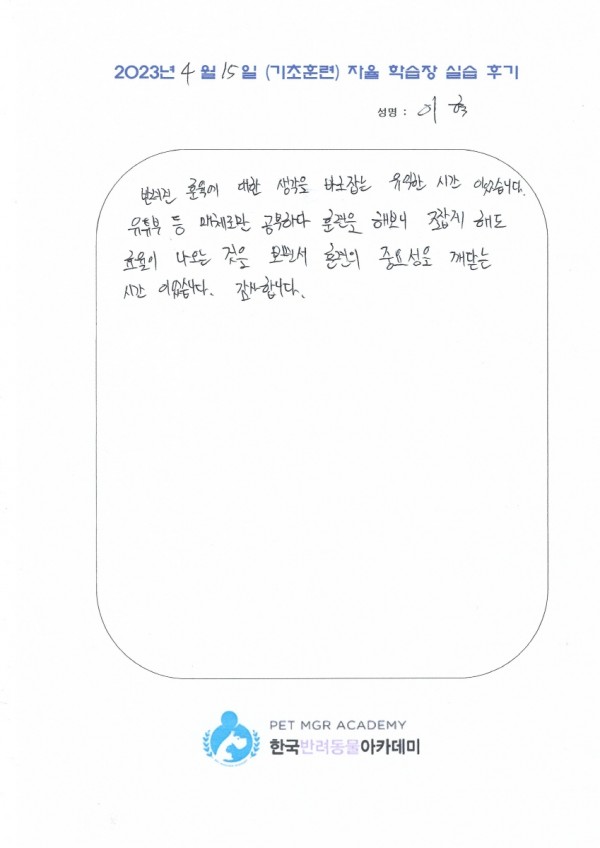 2023년 4월 15일 (기초훈련) 자율 학습장 실습 후기
성명 : 이 혁
반려견 훈육에 대한 생각을 바로잡는 유익한 시간 이었습니다.
유튜브 등 매체로만 공부하다 훈련을 해보니 조잡게 해도
효율이 나오는 것을 보면서 훈련의 중요성을 깨닫는
시간 이었습니다. 감사합니다.
PET MGR ACADEMY
한국반려동물아카데미